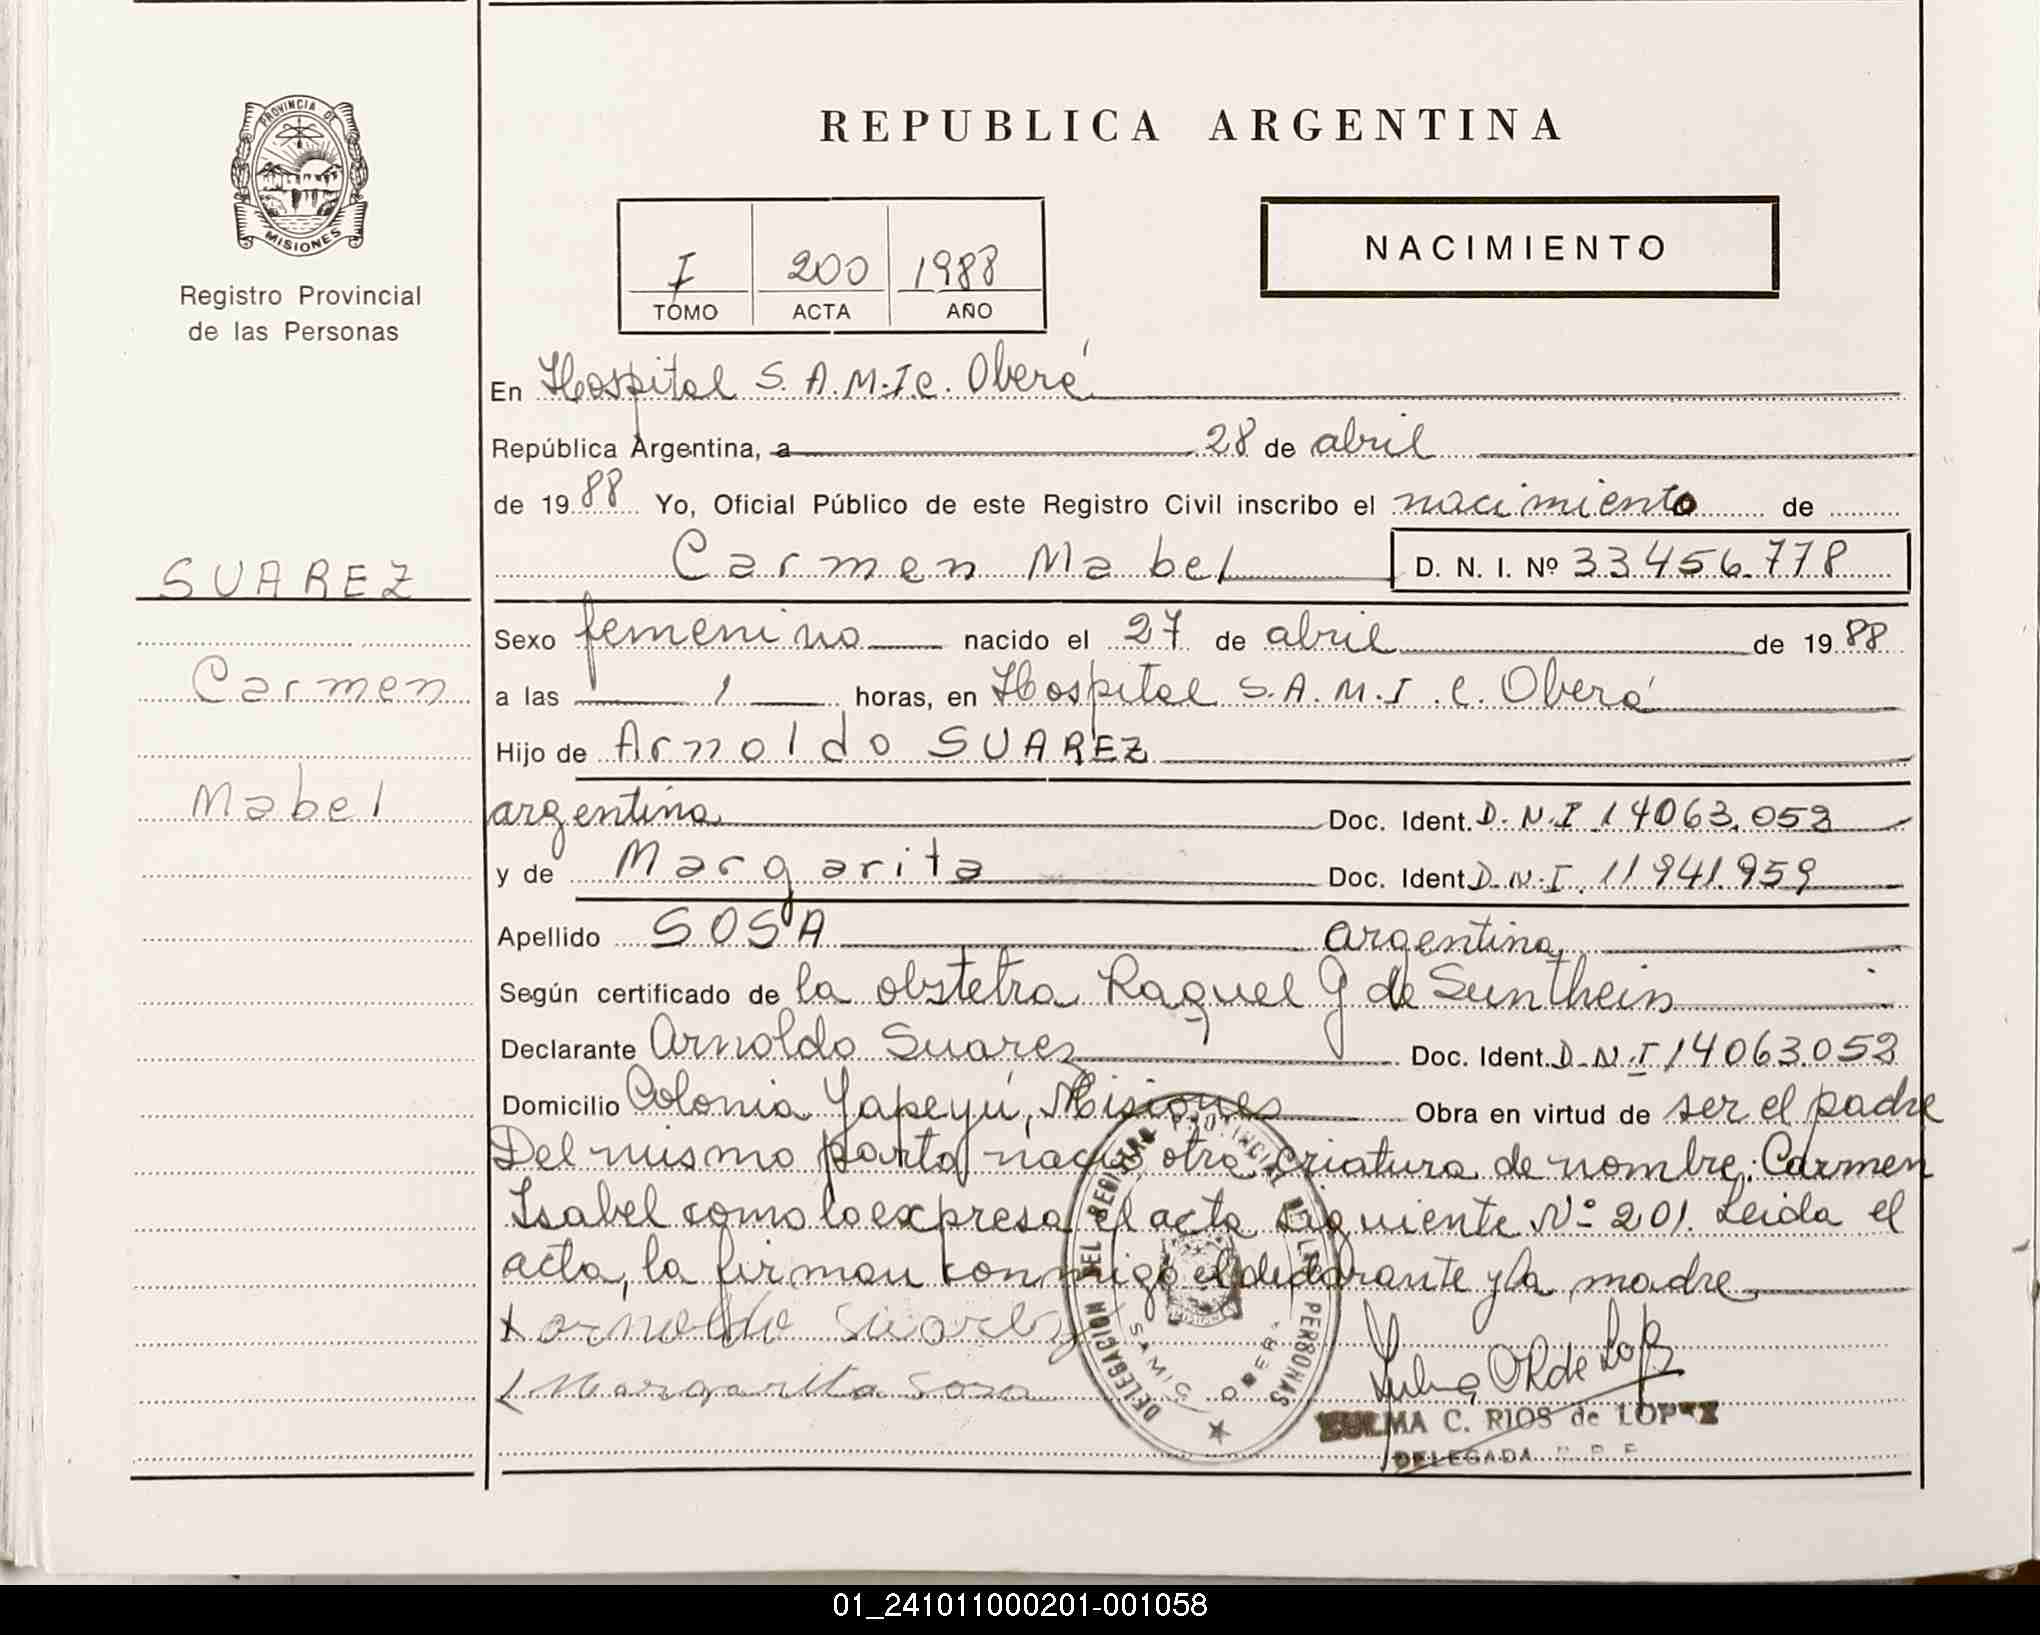 PROVINCIA DE
MISIONES
Registro Provincial
de las Personas
SUAREZ
Carmen
Mabel
REPUBLICA ARGENTINA
I 200 1988
TOMO ACTA AÑO
NACIMIENTO
En Hospital S.A.M.I.C. Oberá
República Argentina, a 28 de abril
de 1988 Yo, Oficial Público de este Registro Civil inscribo el nacimiento de
Carmen Mabel D. N. I. Nº 33.456.778
Sexo femenino nacido el 27 de abril de 1988
a las 1 horas, en Hospital S.A.M.I.C. Oberá
Hijo de Arnoldo SUAREZ
argentina Doc. Ident. D.N.I 14063.053
y de Margarita Doc. Ident D.N.I. 11941.959
Apellido SOSA argentina
Según certificado de la obstetra Raquel G de Sunthein
Declarante Arnoldo Suarez Doc. Ident. D.N.I 14063.053
Domicilio Colonia Yapeyú, Misiones Obra en virtud de ser el padre
Del mismo parto nació otra criatura de nombre: Carmen
Isabel como lo expresa el acta siguiente Nº 201. Leida el
acta, la firman conmigo el declarante y la madre
x arnoldo Suarez
Margarita Sosa
DELEGACION DEL REGISTRO PROVINCIAL DE LAS PERSONAS
SAMIC OBERA
ZULMA C. RIOS de LOPEZ
DELEGADA R. P. P.
01_241011000201-001058